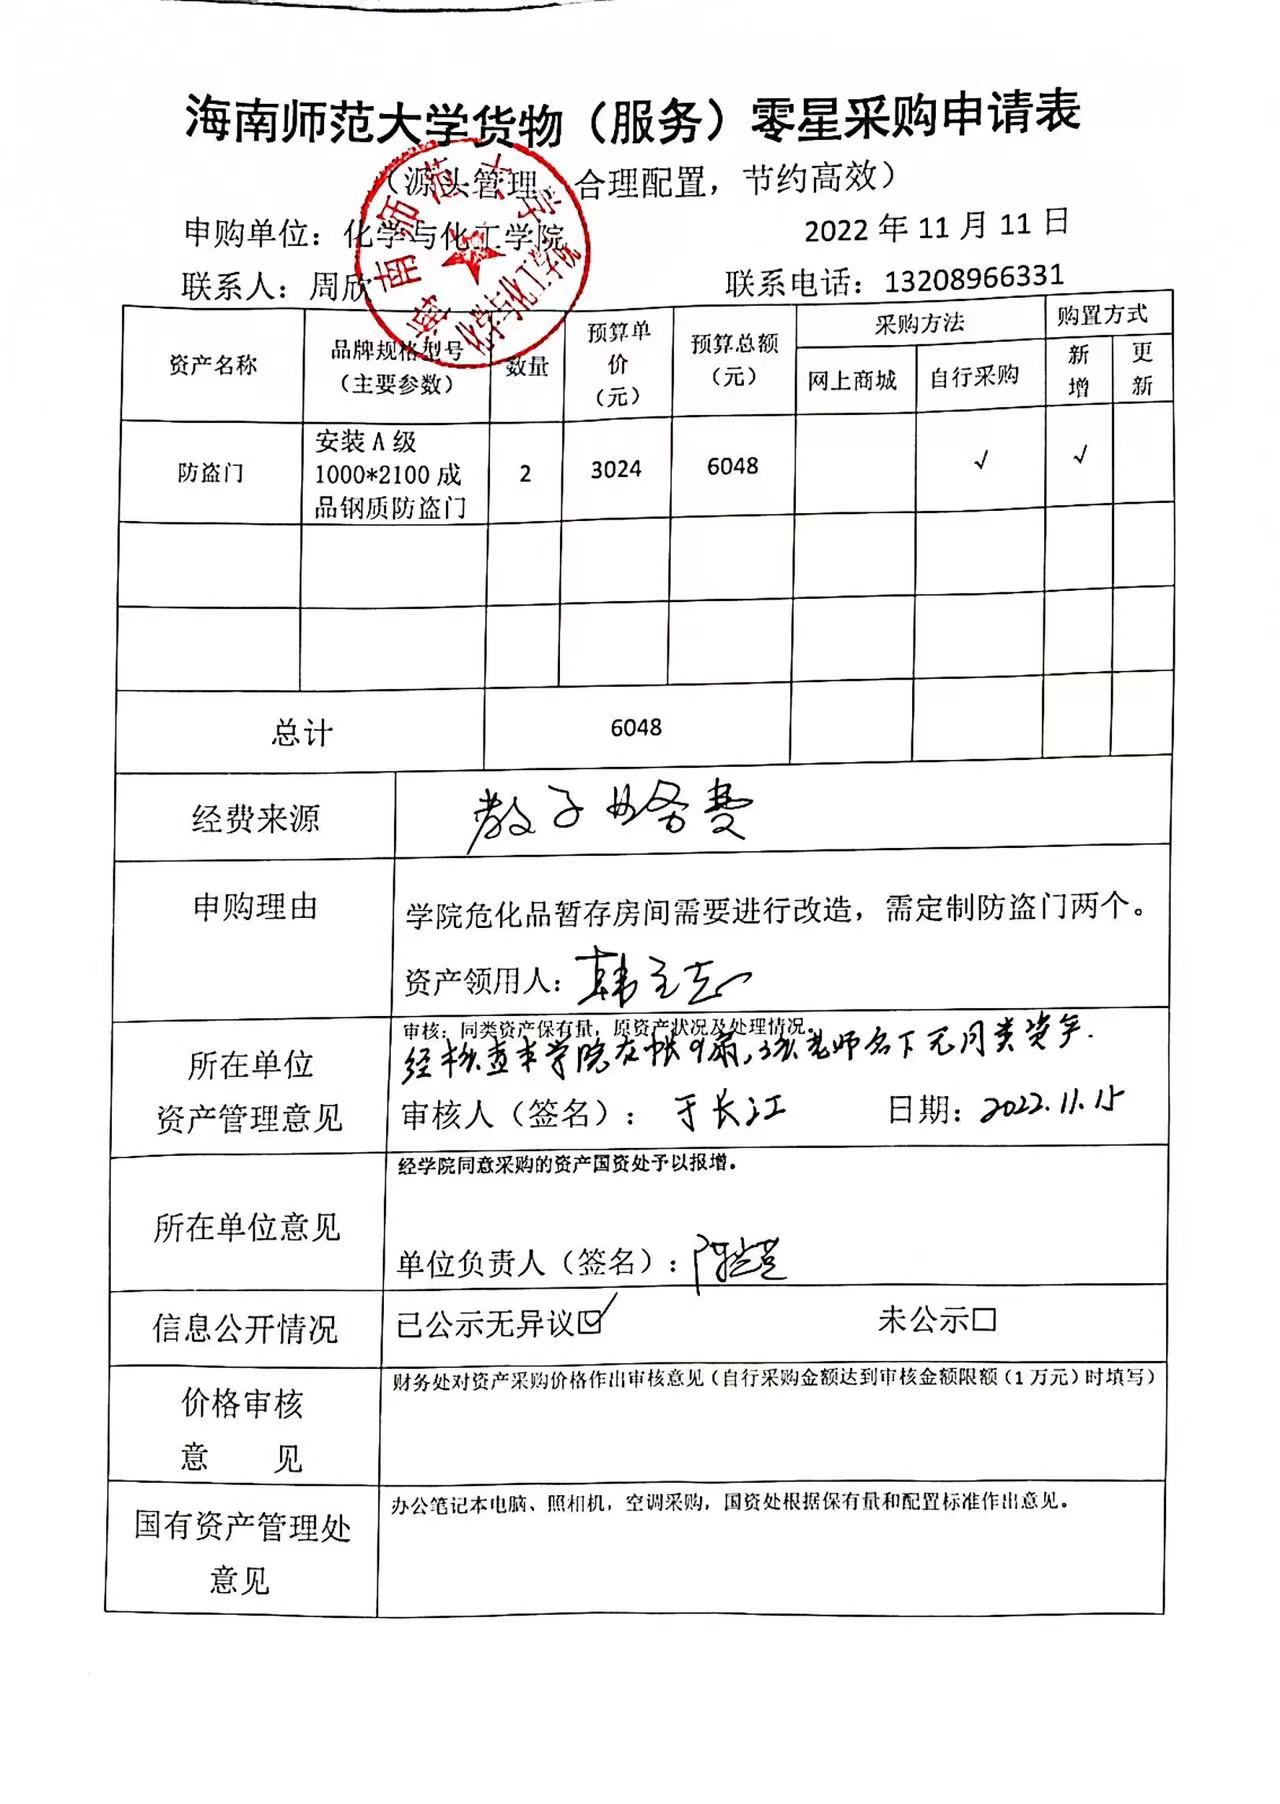 海南师范大学货物（服务）零星采购申请表
（源头管理、合理配置，节约高效）
申购单位：化学与化工学院 2022 年 11 月 11 日
联系人：周欣 联系电话：13208966331
海南师范大学
化学与化工学院
资产名称 品牌规格型号（主要参数） 数量 预算单价（元） 预算总额（元） 采购方法 购置方式
网上商城 自行采购 新增 更新
防盗门 安装 A 级 1000*2100 成品钢质防盗门 2 3024 6048 √ √
总计 6048
经费来源 业务费
申购理由 学院危化品暂存房间需要进行改造，需定制防盗门两个。
资产领用人：
所在单位资产管理意见 审核：同类资产保有量，原资产状况及处理情况。
经核查本学院在帐9扇，该老师名下无同类资产.
审核人（签名）：于长江 日期：2022.11.15
所在单位意见 经学院同意采购的资产国资处予以报增。
单位负责人（签名）：
信息公开情况 已公示无异议☑ 未公示□
价格审核意 见 财务处对资产采购价格作出审核意见（自行采购金额达到审核金额限额（1 万元）时填写）
国有资产管理处意见 办公笔记本电脑、照相机，空调采购，国资处根据保有量和配置标准作出意见。